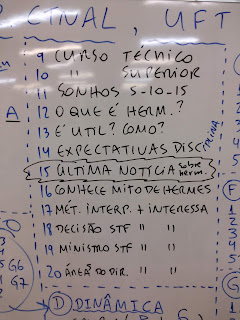 CTNAL, UFT
9 CURSO TÉCNICO
10 " SUPERIOR
11 SONHOS 5-10-15
12 O QUE É HERM.?
13 É UTIL? COMO?
14 EXPECTATIVAS DISCIPLINA
15 ÚLTIMA NOTÍCIA sobre herm.
16 CONHECE MITO DE HERMES
17 MÉT. INTERP. + INTERESSA
18 DECISÃO STF " "
19 MINISTRO STF " "
20 ÁREA DO DIR. " "
D DINÂMICA
A
F
1
2
3
4
5
G
1
2
3
4
5 G6
G7